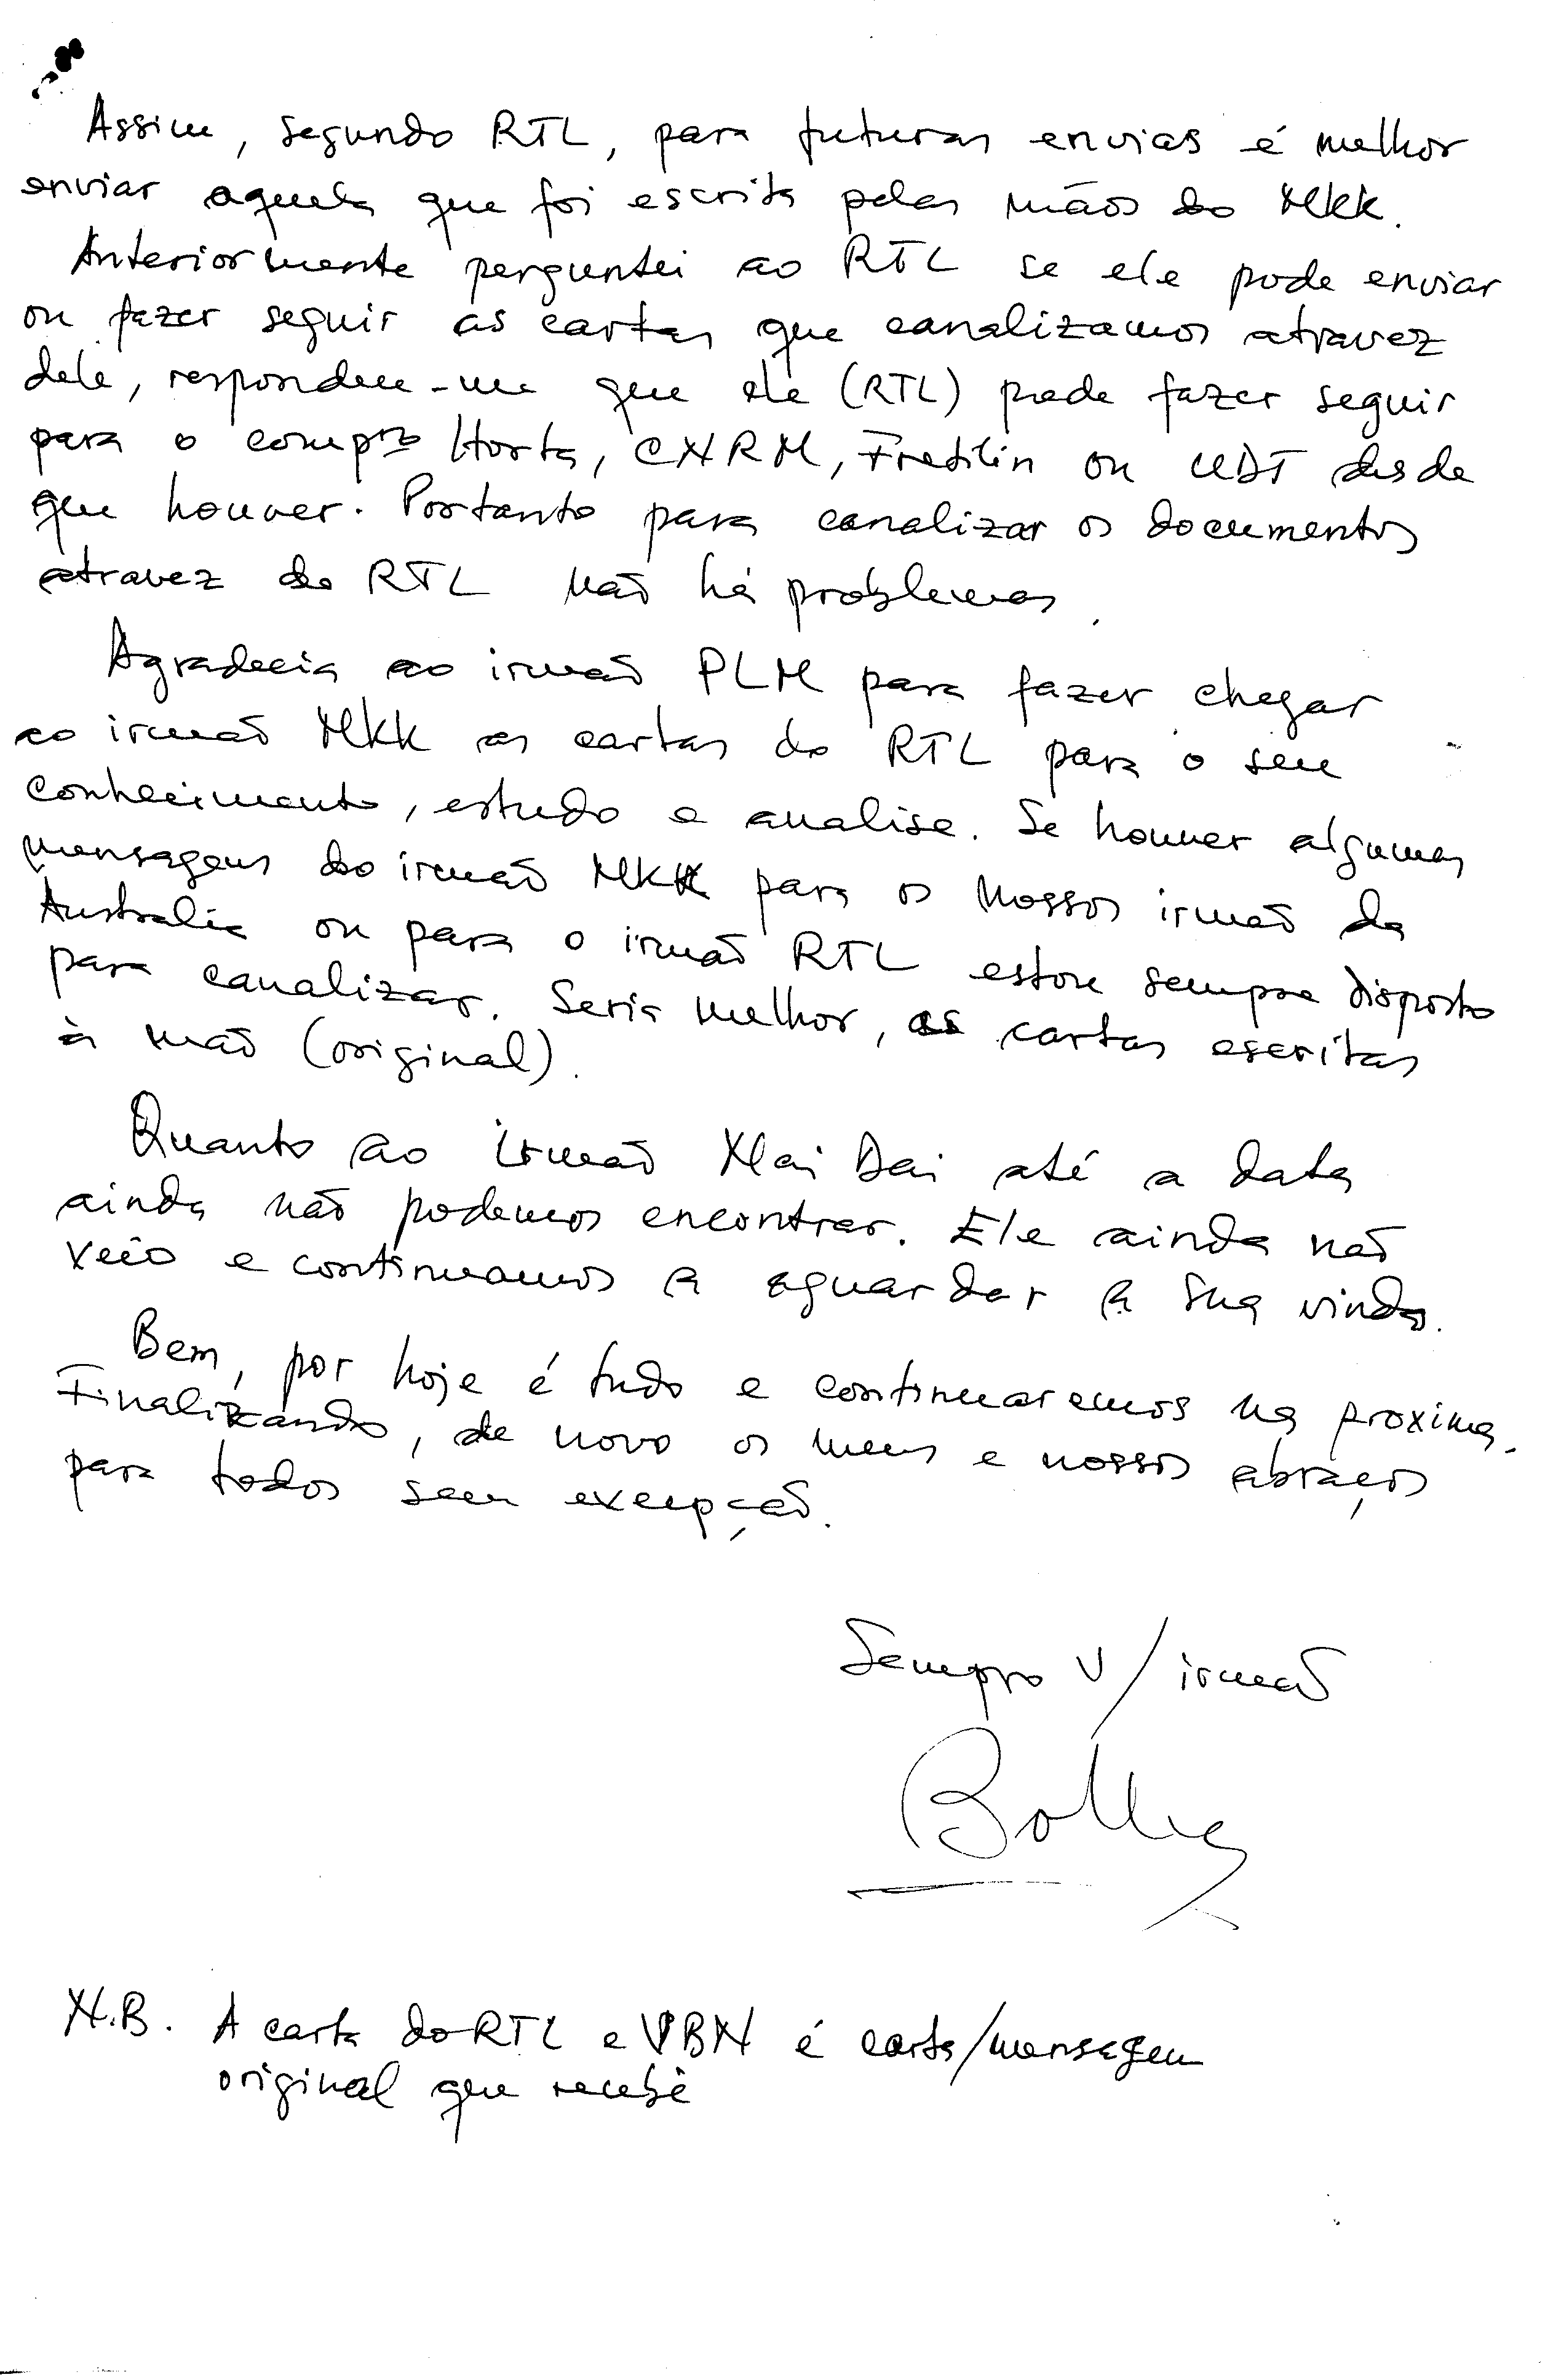 Assim, segundo RTL, para futuras envias é melhor
enviar aquela que foi escrita pelas mãos do MKK.
Anteriormente perguntei ao RTL se ele pode enviar
ou fazer seguir as cartas que canalizamos atravez
dele, respondeu-me que ele (RTL) pode fazer seguir
para o compº Horta, CNRM, Fretilin ou UDT desde
que houver. Portanto para canalizar os documentos
atravez do RTL não há problemas.
Agradecia ao irmão PLM para fazer chegar
ao irmão MKK as cartas do RTL para o seu
conhecimento, estudo e analise. Se houver algumas
mensagens do irmão MKK para os nossos irmão da
Australia ou para o irmão RTL estou sempre disposto
para canalizar. Seria melhor, as cartas escritas
à mão (original).
Quanto ao irmão Mai Dai até a data
ainda não podemos encontrar. Ele ainda não
veio e continuamos a aguardar a sua vinda.
Bem, por hoje é tudo e continuaremos na proxima.
Finalizando, de novo os meus e nossos abraços
para todos sem excepção.
Sempre V/irmão
N.B. A carta do RTL e VBN é carta/mensagem
original que recebê